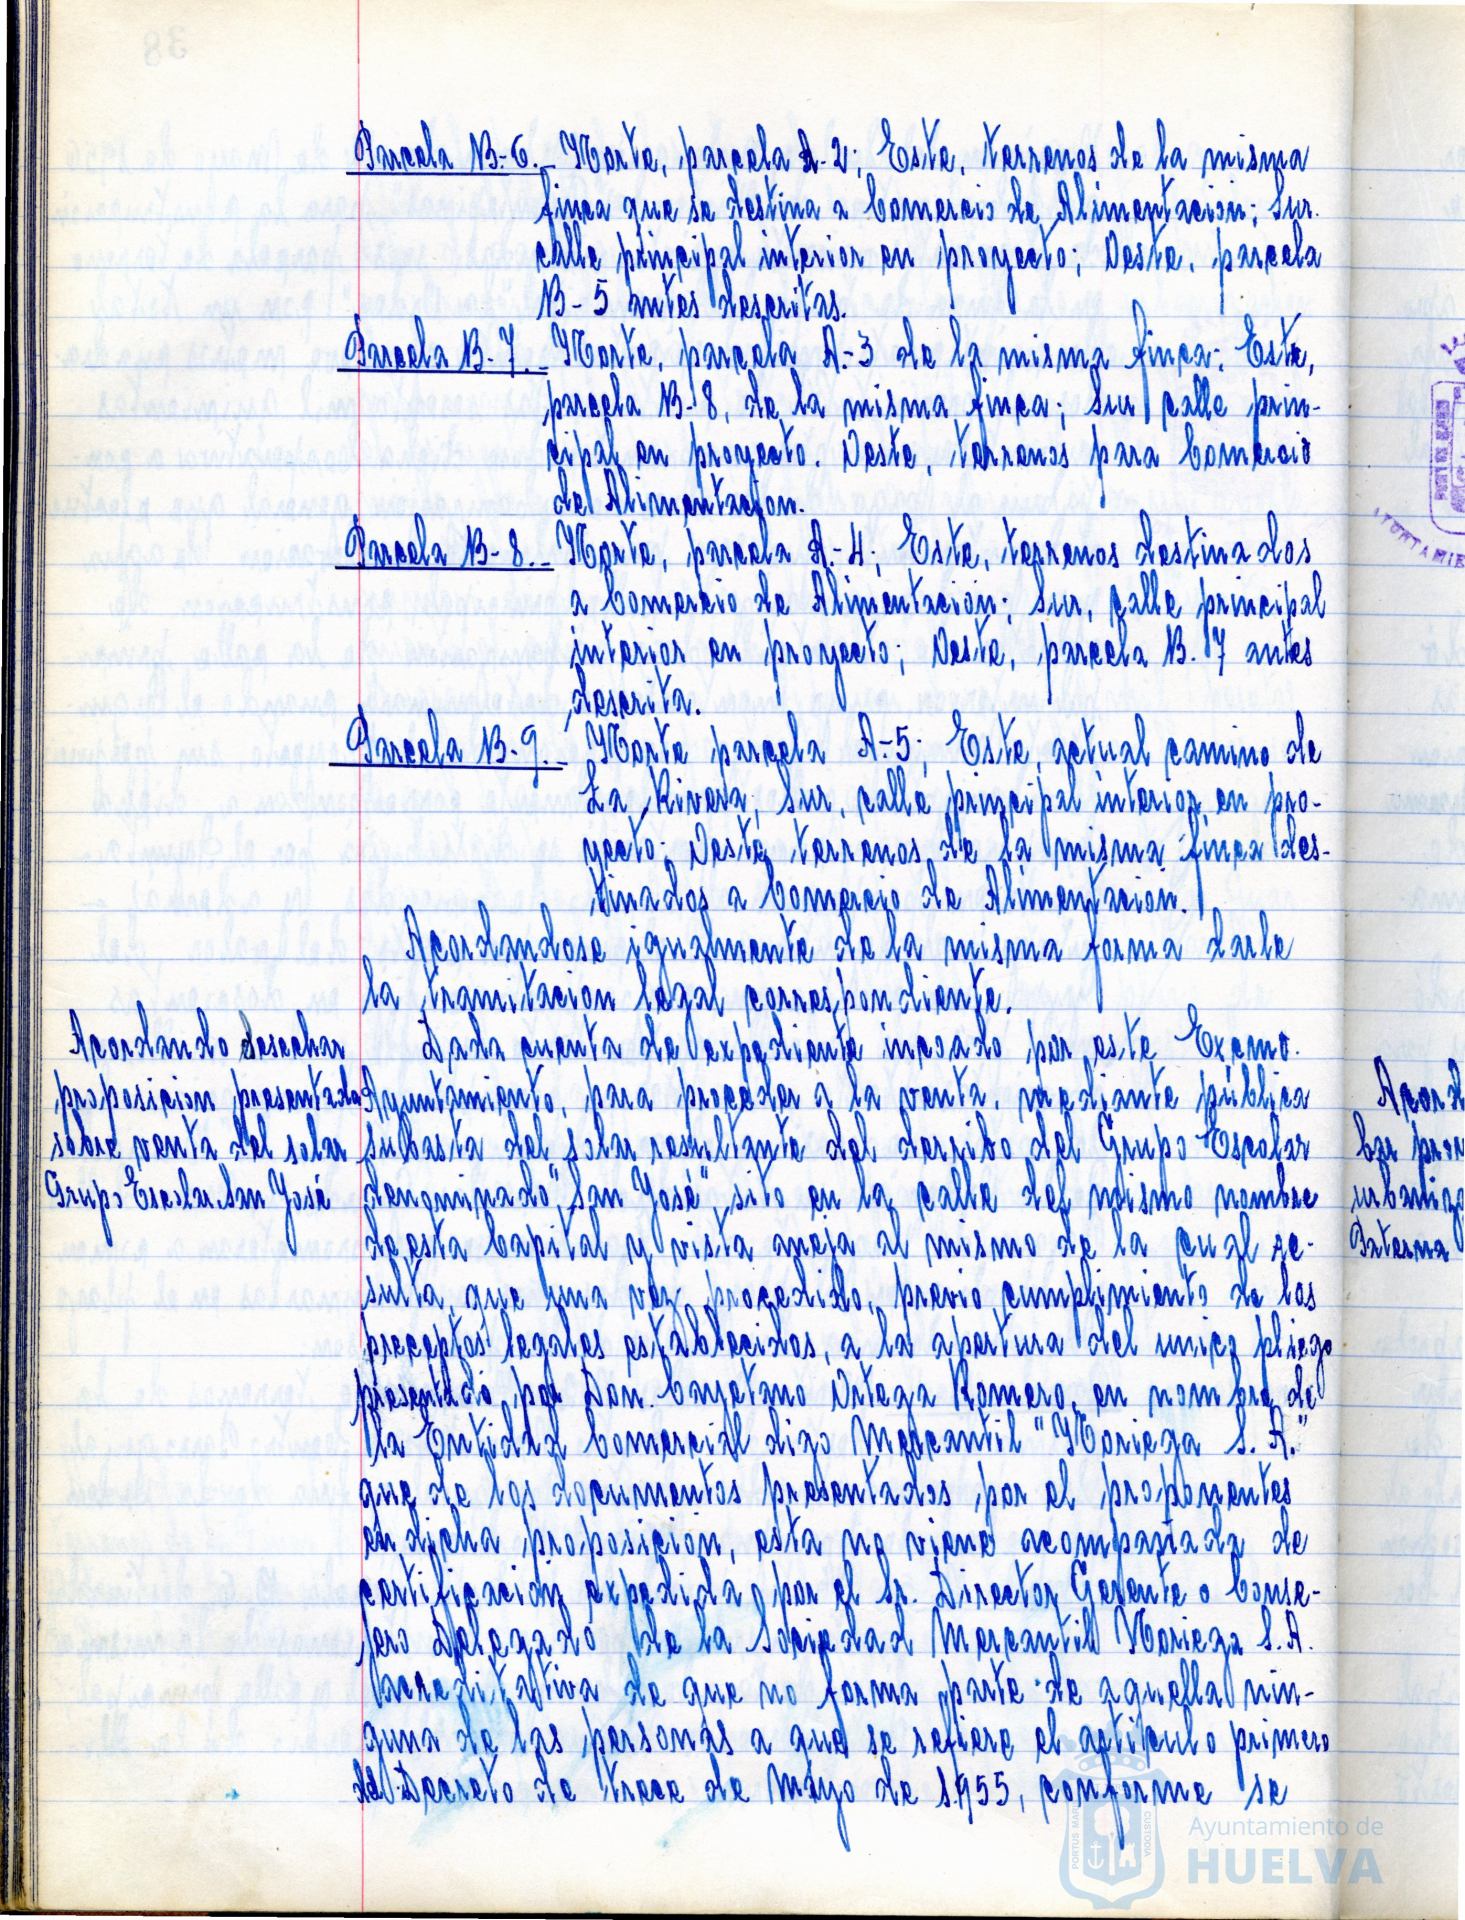 Parcela B-6.- Norte, parcela A-2; Este, terrenos de la misma
finca que se destina a Comercio de Alimentacion; Sur.
calle principal interior en proyecto; Oeste, parcela
B-5 antes descritas.
Parcela B-7.- Norte, parcela A-3 de la misma finca. Este,
parcela B-8, de la misma finca; Sur calle prin-
cipal en proyecto. Oeste, terrenos para Comercio
de Alimentacion.
Parcela B-8.- Norte, parcela A-4; Este, terrenos destinados
a Comercio de Alimentación; Sur, calle principal
interior en proyecto; Oeste, parcela B.7 antes
descrita.
Parcela B-9.- Norte parcela A-5; Este, actual camino de
La Rivera; Sur, calle principal interior en pro-
yecto; Oeste, terrenos de la misma finca des-
tinados a Comercio de Alimentación.
Acordandose igualmente de la misma forma darle
la tramitacion legal correspondiente.
Acordando desechar
proposicion presentada
sobre venta del solar
Grupo Escolar San José
Dada cuenta de expediente incoado por este Excmo.
Ayuntamiento, para proceder a la venta, mediante pública
subasta del solar resultante del derribo del Grupo Escolar
denominado "San José", sito en la calle del mismo nombre
de esta Capital y vista aneja al mismo de la cual re-
sulta, que una vez procedido, previo cumplimiento de los
preceptos legales establecidos, a la apertura del unico pliego
presentado por Don Cayetano Ortega Romero, en nombre de
la Entidad Comercial digo Mercantil "Noriega S. A."
que de los documentos presentados por el proponentes
en dicha proposición, esta no viene acompañada de
certificación expedida por el Sr. Director Gerente o Conse-
jero Delegado de la Sociedad Mercantil Noriega S.A.
acreditativa de que no forma parte de aquella nin-
guna de las personas a que se refiere el articulo primero
del Decreto de trece de Mayo de 1.955, conforme se
Ayuntamiento de
HUELVA
PORTUS MARIS
CUSTODIA
38